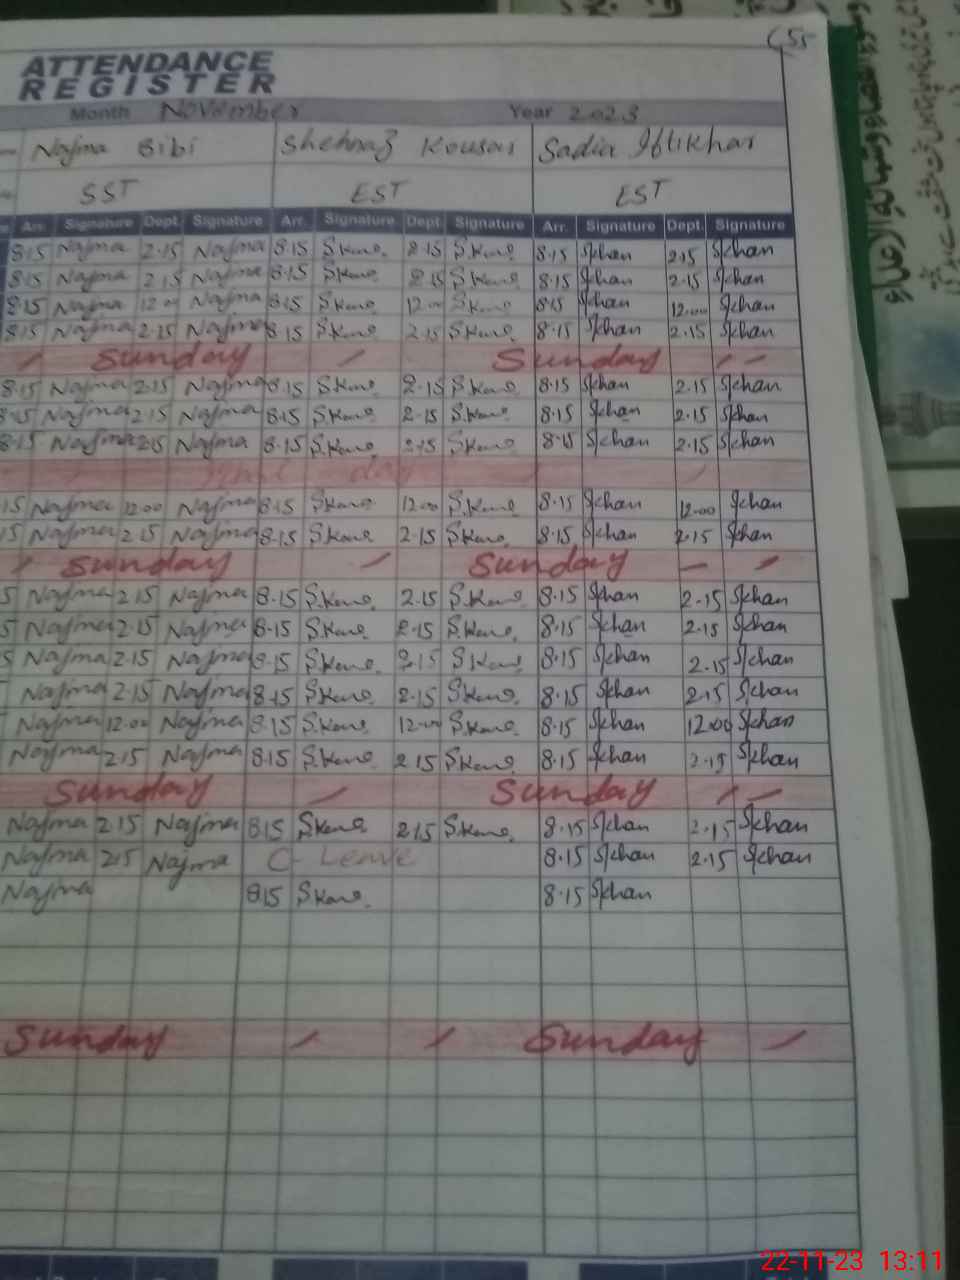 55
ATTENDANCE
REGISTER
Month November Year 2023
Najma Bibi Shehnaz Kousar Sadia Iftikhar
SST EST EST
Arr. Signature Dept. Signature Arr. Signature Dept. Signature Arr. Signature Dept. Signature
8:15 Najma 2.15 Najma 8.15 S.Kano 2.15 S.Kano 8.15 Sfchan 2.15 Sfchan
8.15 Najma 2.15 Najma 8.15 S.Kano 2.15 S.Kano 8.15 Sfchan 2.15 Sfchan
8.15 Najma 12.00 Najma 8.15 S.Kano 12.00 S.Kano 8.15 Sfchan 12.00 Sfchan
8.15 Najma 2.15 Najma 8.15 S.Kano 2.15 S.Kano 8.15 Sfchan 2.15 Sfchan
Sunday Sunday
8.15 Najma 2.15 Najma 8.15 S.Kano 2.15 S.Kano 8.15 Sfchan 2.15 Sfchan
8.15 Najma 2.15 Najma 8.15 S.Kano 2.15 S.Kano 8.15 Sfchan 2.15 Sfchan
8.15 Najma 2.15 Najma 8.15 S.Kano 2.15 S.Kano 8.15 Sfchan 2.15 Sfchan
day
15 Najma 12.00 Najma 8.15 S.Kano 12.00 S.Kano 8.15 Sfchan 12.00 Sfchan
15 Najma 2.15 Najma 8.15 S.Kano 2.15 S.Kano 8.15 Sfchan 2.15 Sfchan
Sunday Sunday
5 Najma 2.15 Najma 8.15 S.Kano 2.15 S.Kano 8.15 Sfchan 2.15 Sfchan
5 Najma 2.15 Najma 8.15 S.Kano 2.15 S.Kano 8.15 Sfchan 2.15 Sfchan
5 Najma 2.15 Najma 8.15 S.Kano 2.15 S.Kano 8.15 Sfchan 2.15 Sfchan
Najma 2.15 Najma 8.15 S.Kano 2.15 S.Kano 8.15 Sfchan 2.15 Sfchan
Najma 12.00 Najma 8.15 S.Kano 12.00 S.Kano 8.15 Sfchan 12.00 Sfchan
Najma 2.15 Najma 8.15 S.Kano 2.15 S.Kano 8.15 Sfchan 2.15 Sfchan
Sunday Sunday
Najma 2.15 Najma 8.15 S.Kano 2.15 S.Kano 8.15 Sfchan 2.15 Sfchan
Najma 2.15 Najma C- Leave 8.15 Sfchan 2.15 Sfchan
Najma 8.15 S.Kano 8.15 Sfchan
Sunday Sunday
22-11-23 13:11